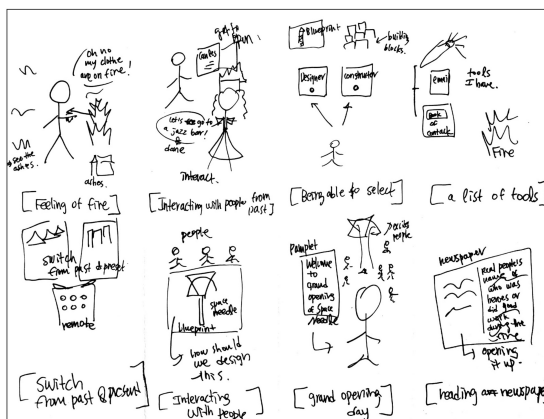 oh no
my clothe
are on fire!
see the
ashes.
ashes.
[Feeling of fire]
Games
got to
fun!
Let's go to
a jazz bar!
&
dance
interact.
[Interacting with people from
past]
Blueprint
building
blocks.
Designer
constructor
[Being able to select]
email
Book
of
contact
tools
I have.
Fire
[a list of tools]
switch
from past & present
remote
[Switch
from past & present]
people
space
needle
blueprint
how should
we design
this.
[Interacting
with people]
Pamplet
Welcome
to
grand
opening
of space
Needle
excite
people
[grand opening
day]
newspaper
Real people's
name of
who was
heroes or
did good
work
during the
fire
opening
it up.
[heading newspaper]